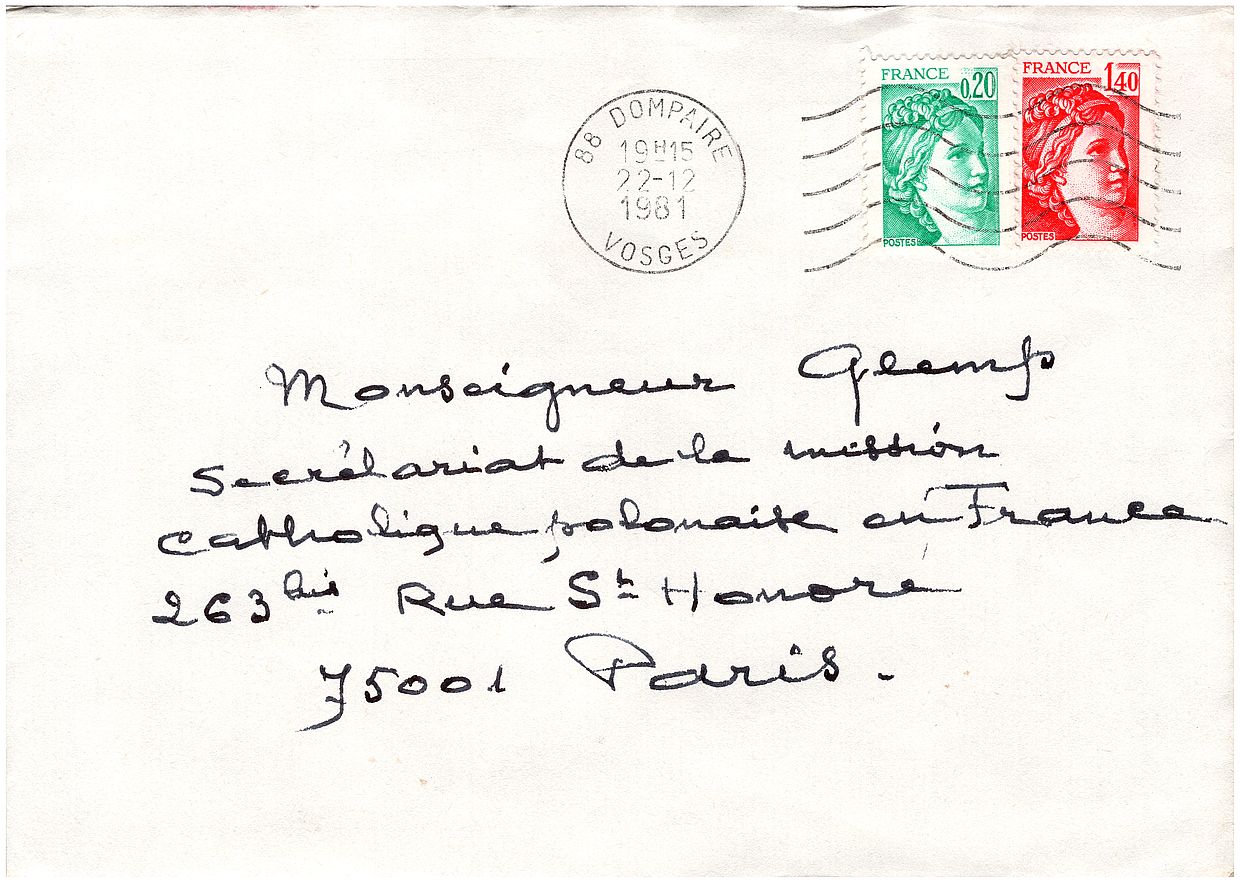 FRANCE 0,20
POSTES
FRANCE 1,40
POSTES
88 DOMPAIRE
19H15
22-12
1981
VOSGES
Monseigneur Glemp
Secrétariat de la mission
catholique polonaise en France
263 bis Rue St Honore
75001 Paris.